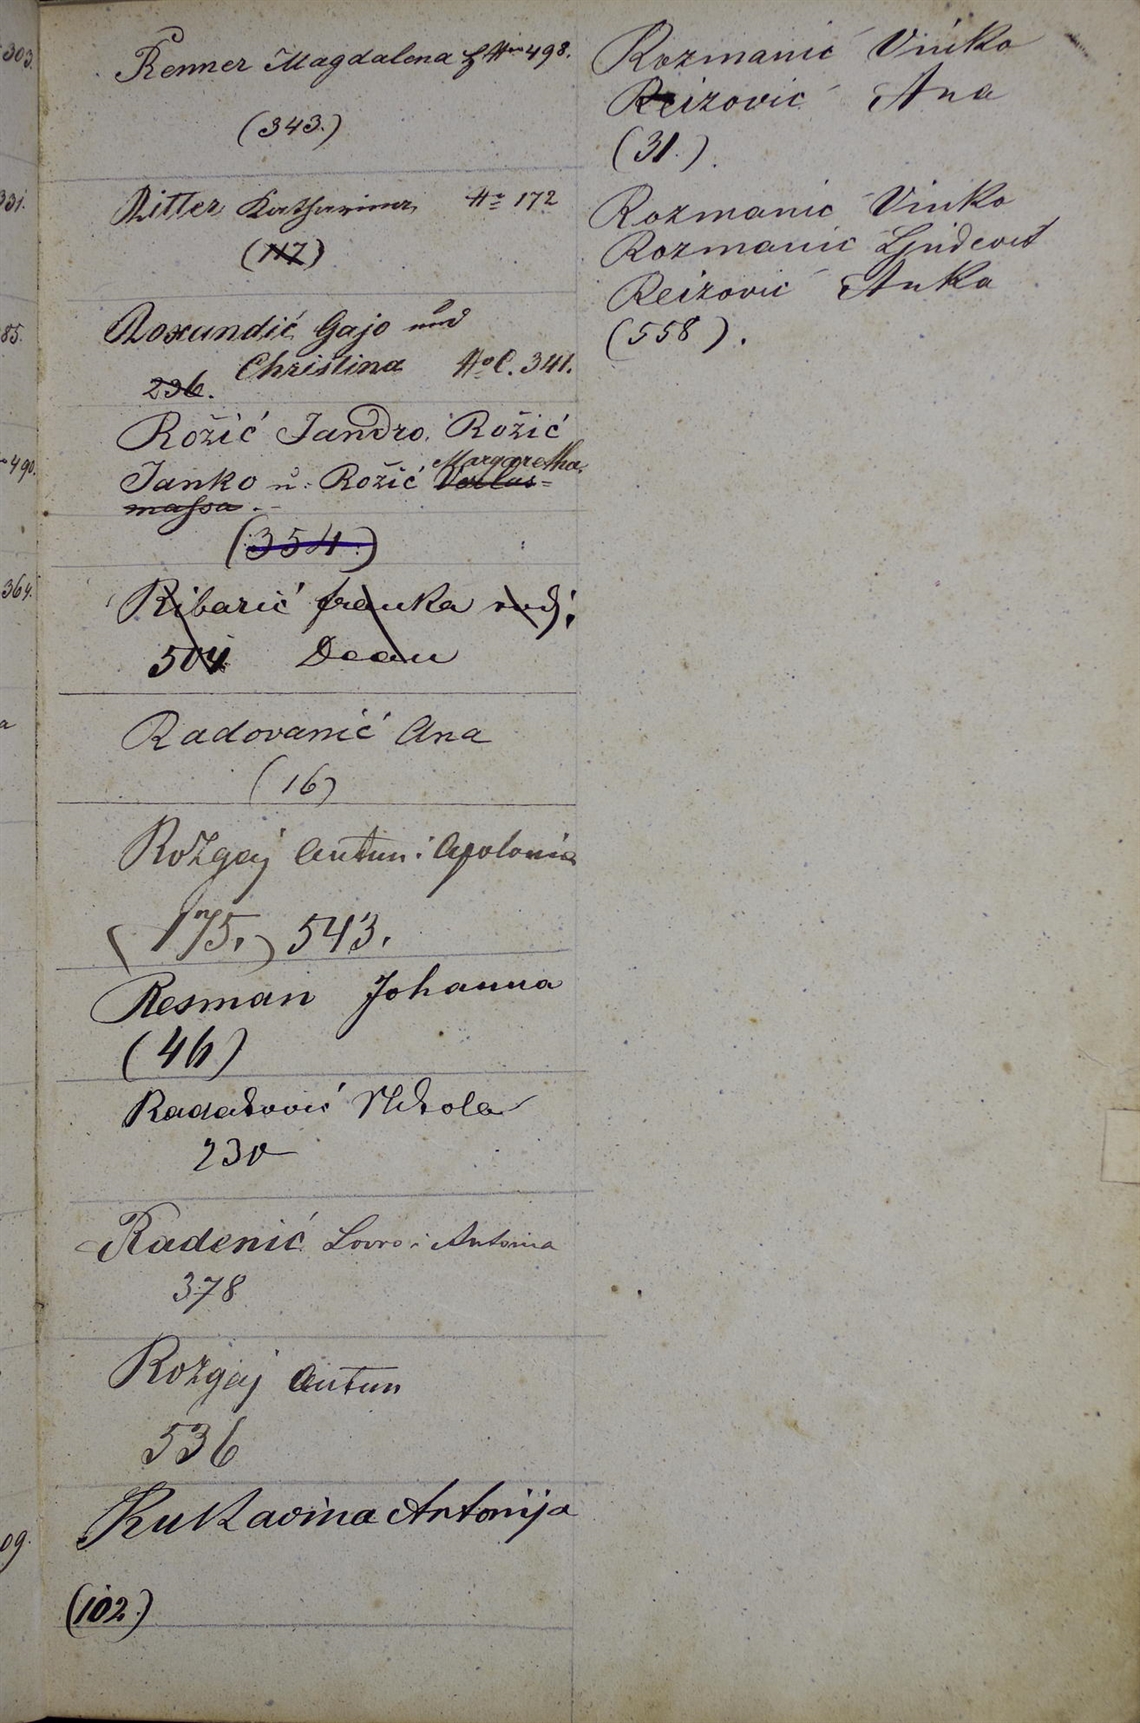 303.
Renner Magdalena Nro 498.
(343.)
331.
Ritter Katharina No 172
(117)
Roxundić Gajo und
85.
Christina No C. 341.
236.
Rožić Jandro, Rožić
490.
Margaretha
Janko u. Rožić Verlass=
massa.
(354.)
364.
Ribarić Franka rodj.
504 Dean
a
Radovanić Ana
(16)
Rožgaj Antun i Apolonia
(175.) 543.
Resman Johanna
(46)
Nikola
230
Radenić Lovro i Antonia
378
Rožgaj Antun
536
Rukavina Antonija
09.
(102.)
Rozmanić Vinko
Reizović Ana
(31.).
Rozmanić Vinko
Rozmanić Ljudevit
Reizović Anka
(558).